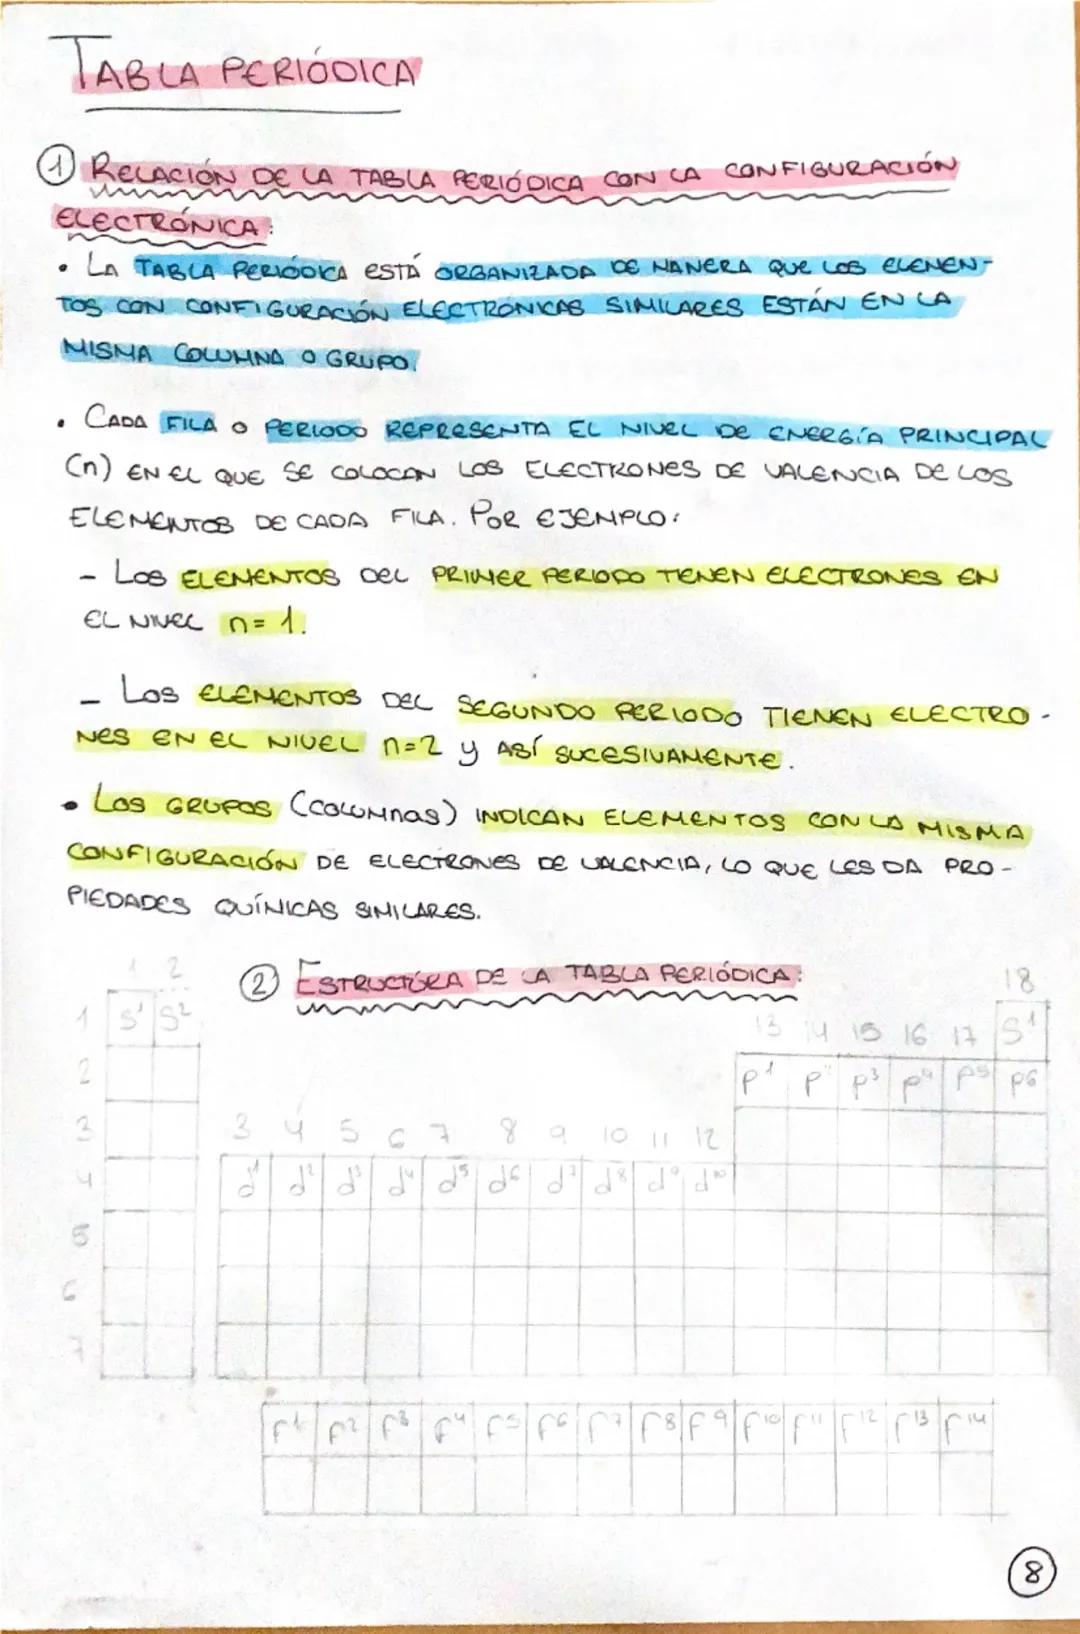 TABLA PERIÓDICA
① RELACIÓN DE LA TABLA PERIÓDICA CON LA CONFIGURACIÓN
ELECTRÓNICA:
• LA TABLA PERIÓDICA ESTÁ ORGANIZADA DE MANERA QUE LOS ELEMEN-
TOS CON CONFIGURACIÓN ELECTRÓNICAS SIMILARES ESTÁN EN LA
MISMA COLUMNA O GRUPO.
• CADA FILA O PERIODO REPRESENTA EL NIVEL DE ENERGÍA PRINCIPAL
(n) EN EL QUE SE COLOCAN LOS ELECTRONES DE VALENCIA DE LOS
ELEMENTOS DE CADA FILA. POR EJEMPLO:
- LOS ELEMENTOS DEL PRIMER PERIODO TIENEN ELECTRONES EN
EL NIVEL n=1.
- LOS ELEMENTOS DEL SEGUNDO PERIODO TIENEN ELECTRO-
NES EN EL NIVEL n=2 y ASÍ SUCESIVAMENTE.
• LOS GRUPOS (COLUMNAS) INDICAN ELEMENTOS CON LA MISMA
CONFIGURACIÓN DE ELECTRONES DE VALENCIA, LO QUE LES DA PRO-
PIEDADES QUÍMICAS SIMILARES.
② ESTRUCTURA DE LA TABLA PERIÓDICA:
1 2
18
13 14 15 16 17
1 s¹ s² s¹
2 p¹ p² p³ p⁴ p⁵ p⁶
3 3 4 5 6 7 8 9 10 11 12
4 d¹ d² d³ d⁴ d⁵ d⁶ d⁷ d⁸ d⁹ d¹⁰
5
6
7
f¹ f² f³ f⁴ f⁵ f⁶ f⁷ f⁸ f⁹ f¹⁰ f¹¹ f¹² f¹³ f¹⁴
8